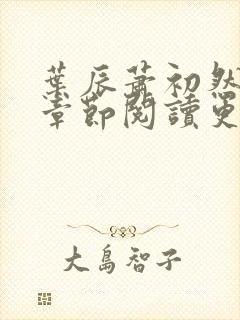 葉辰蕭初然
章節閱讀更
大島智子